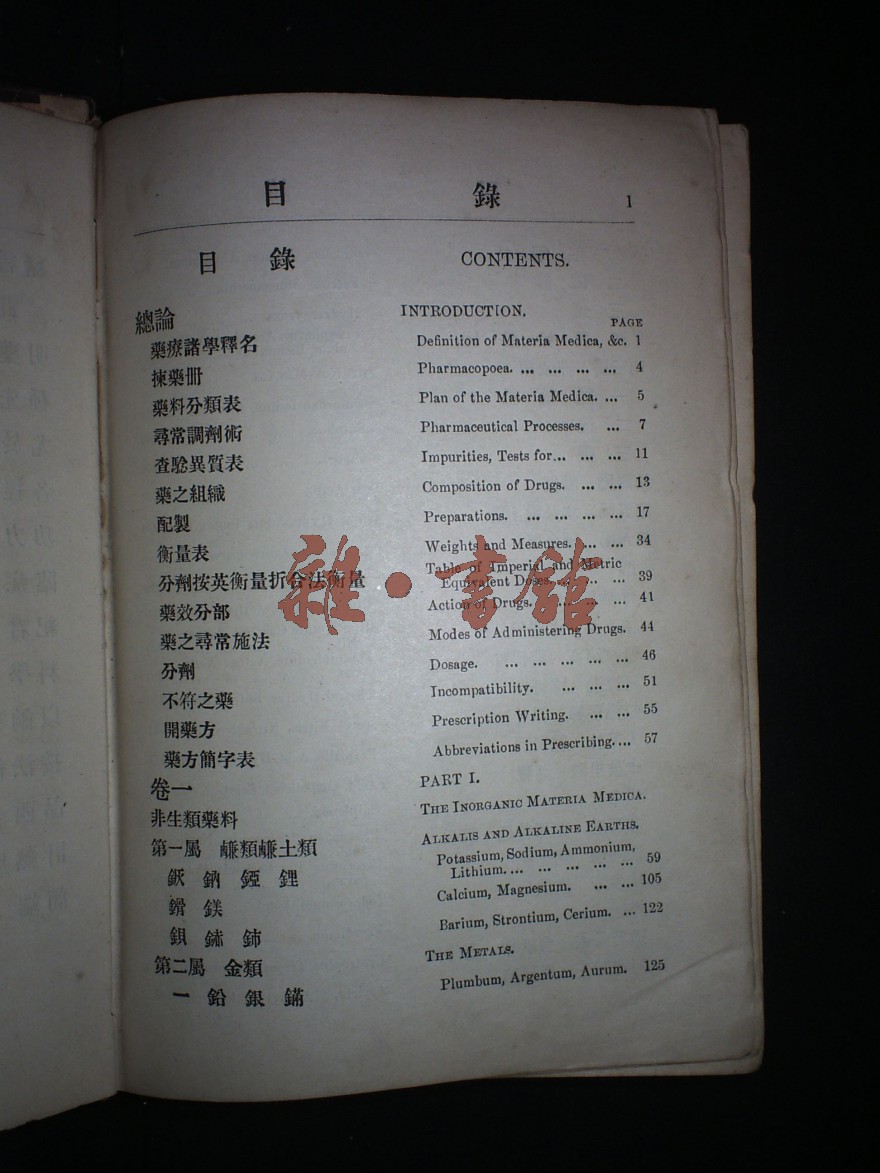 目 錄 1
目 錄 CONTENTS.
總論 INTRODUCTION.
PAGE
藥療諸學釋名 Definition of Materia Medica, &c. 1
揀藥冊 Pharmacopoea. ... ... ... ... 4
藥料分類表 Plan of the Materia Medica. ... 5
尋常調劑術 Pharmaceutical Processes. ... 7
查騐異質表 Impurities, Tests for... ... ... 11
藥之組織 Composition of Drugs. ... ... 13
配製 Preparations. ... ... ... ... 17
衡量表 Weights and Measures. ... ... 34
分劑按英衡量折合法衡量 Table of Imperial and Metric
Equivalent Doses. ... ... ... 39
藥效分部 Action of Drugs. ... ... ... 41
藥之尋常施法 Modes of Administering Drugs. 44
分劑 Dosage. ... ... ... ... ... 46
不符之藥 Incompatibility. ... ... ... 51
開藥方 Prescription Writing. ... ... 55
藥方簡字表 Abbreviations in Prescribing. ... 57
卷一 PART I.
非生類藥料 THE INORGANIC MATERIA MEDICA.
第一屬 鹻類鹻土類 ALKALIS AND ALKALINE EARTHS.
Potassium, Sodium, Ammonium,
鈉 鋰 Lithium. ... ... ... ... ... 59
鎂 Calcium, Magnesium. ... ... 105
鋇 鈰 Barium, Strontium, Cerium. ... 122
第二屬 金類 THE METALS.
一 鉛 銀 Plumbum, Argentum, Aurum. 125
雜·書館